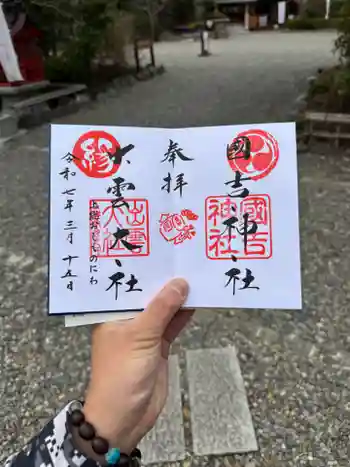 國吉神社
國吉
神社
奉拝
大雲大社
出雲
大社
縁
上総かずさのにわ
令和七年三月十五日